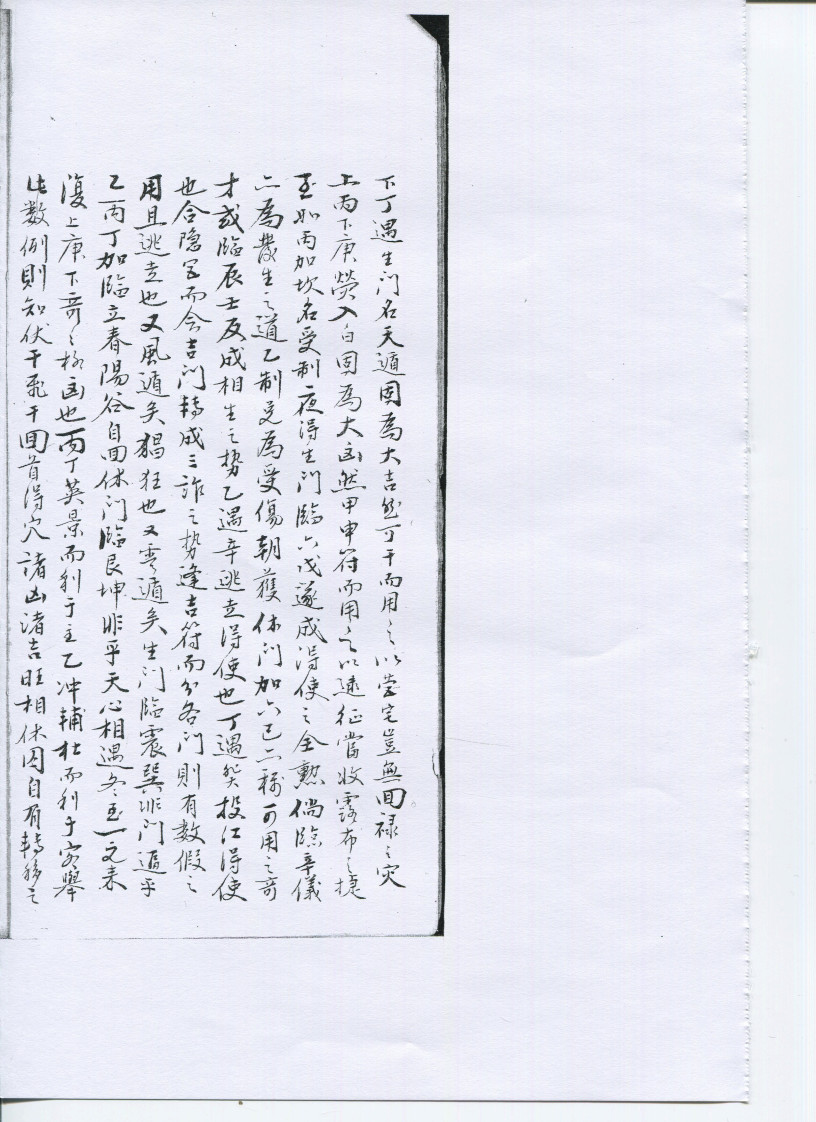 下丁遇生门名天遁固為大吉然可干而用之以营宅豈無回禄之灾
上丙下庚熒入白固為大凶然甲申符而用之以遠征當收露布之捷
至如丙加坎名受制夜得生门臨六戊遂成得使之全勲倘臨辛儀
亦為發生之道乙制兑為受傷朝獲休门加六己亦稱可用之奇
才或臨辰壬反成相生之势乙遇辛逃走得使也丁遇癸投江得使
也合隐宫而会吉门轉成三詐之势逢吉符而分各门則有数假之
用且逃走也又風遁矣猖狂也又雲遁矣生门臨震巽非门遁乎
乙丙丁加臨立春陽谷自回休门臨艮坤非乎天心相遇冬至一元来
復上庚下奇之格凶也丙丁英景而利于主乙冲輔杜而利于客舉
此数例則知伏干飛干回首得穴諸凶诸吉旺相休囚自有轉移之